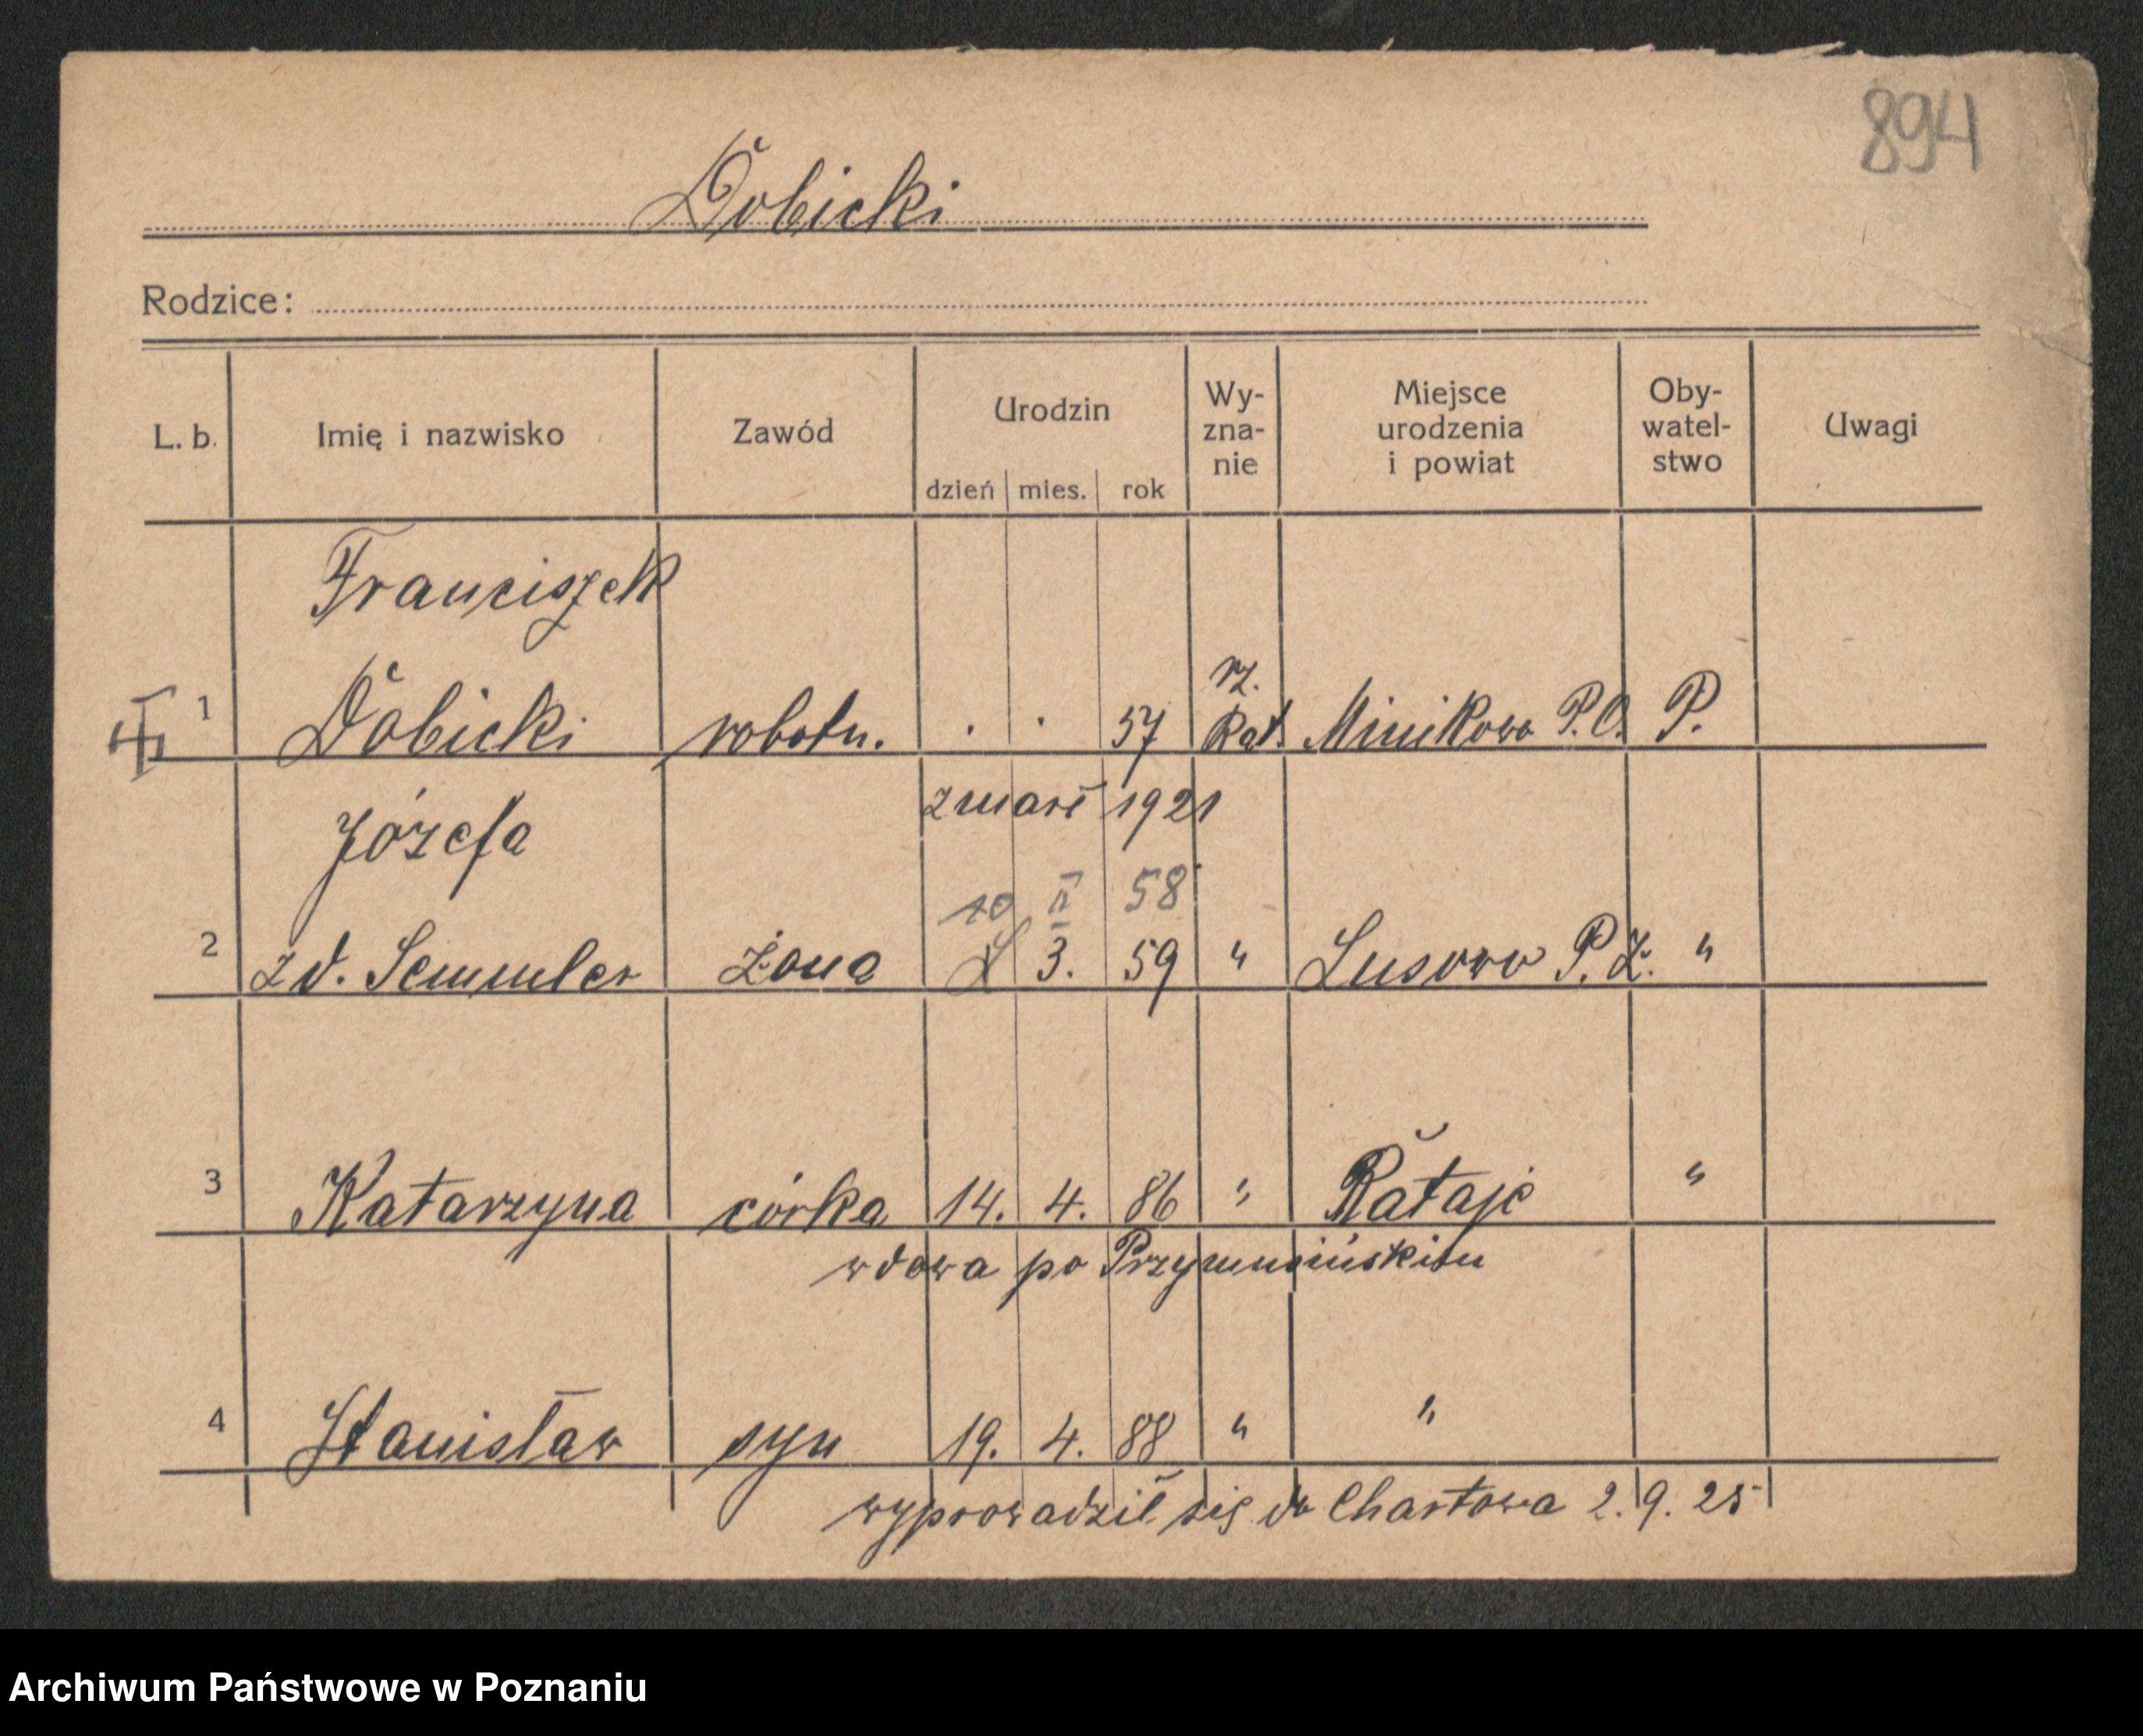 894
Dobicki
Rodzice:
L. b. Imię i nazwisko Zawód Urodzin dzień mies. rok Wy-zna-nie Miejsce urodzenia i powiat Oby-watel-stwo Uwagi
Franciszek
1 Dobicki robotn. . . 57 rz. Kat. Minikowo P.O. P.
zmarł 1921
Józefa
10 II 58
2 zd. Semmler żona 3. 59 " Lusowo P.Z. "
3 Katarzyna córka 14. 4. 86 " Rataje "
wdowa po Przymusińskim
4 Stanisław syn 19. 4. 88 " "
wyprowadził się do Chartowa 2. 9. 25
Archiwum Państwowe w Poznaniu